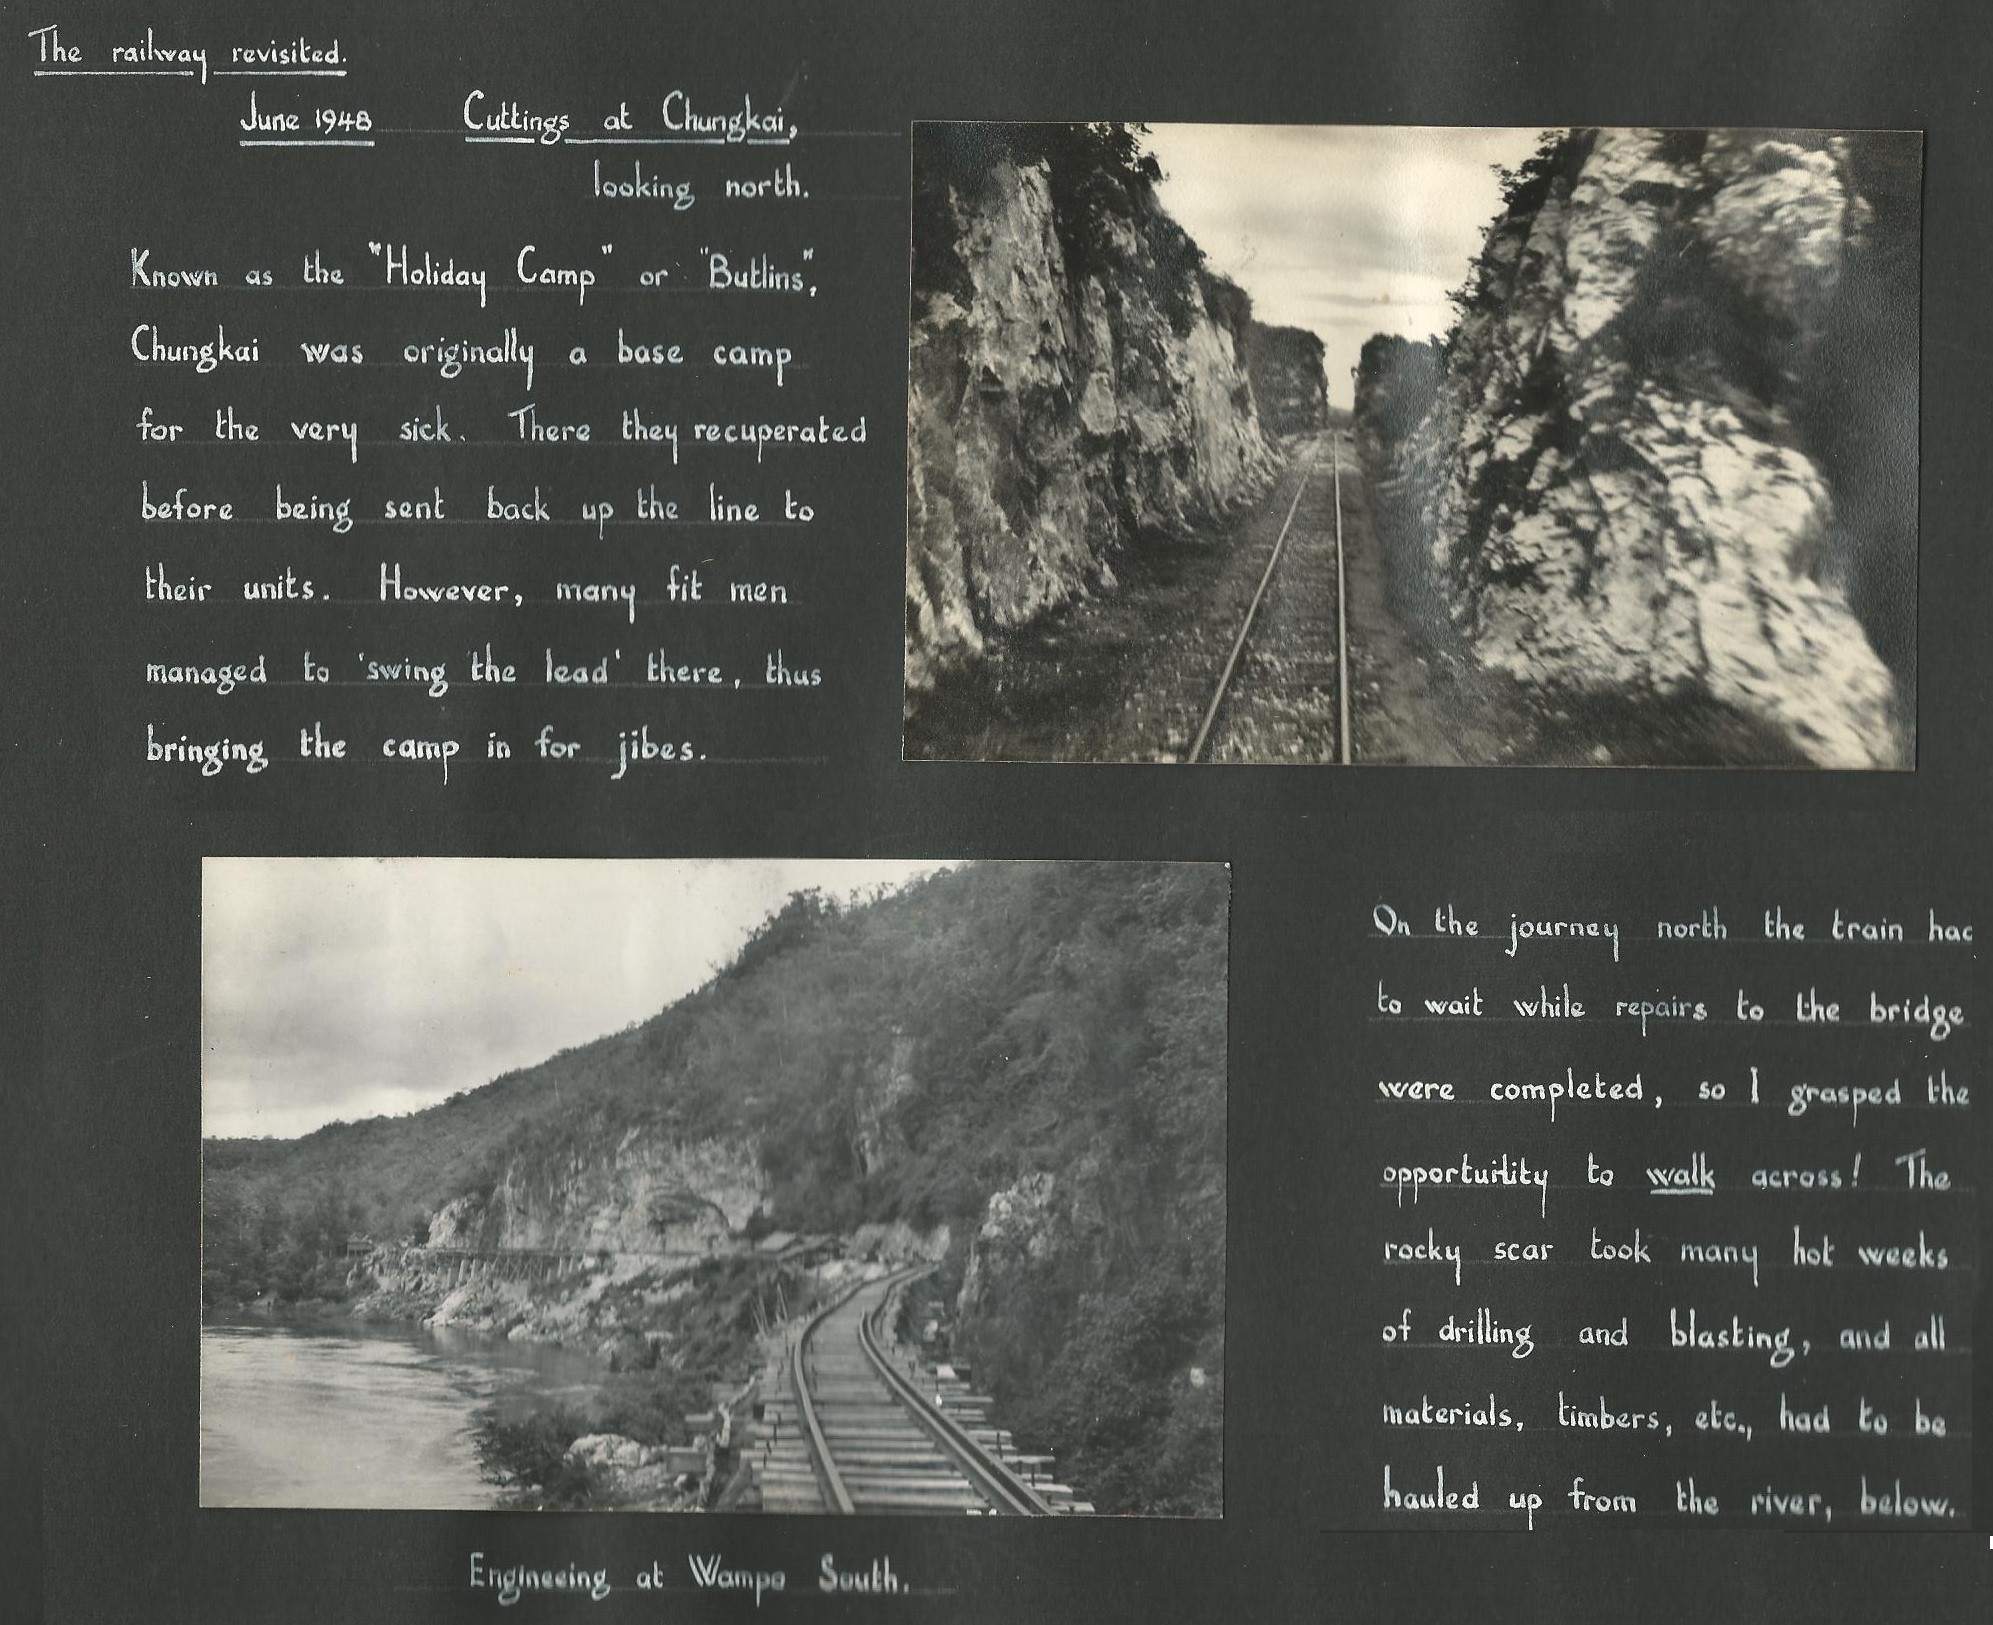 The railway revisited.
June 1948 Cuttings at Chungkai,
looking north.
Known as the "Holiday Camp" or "Butlins",
Chungkai was originally a base camp
for the very sick. There they recuperated
before being sent back up the line to
their units. However, many fit men
managed to 'swing the lead' there, thus
bringing the camp in for jibes.
On the journey north the train had
to wait while repairs to the bridge
were completed, so I grasped the
opportunity to walk across! The
rocky scar took many hot weeks
of drilling and blasting, and all
materials, timbers, etc., had to be
hauled up from the river, below.
Engineeing at Wampo South.